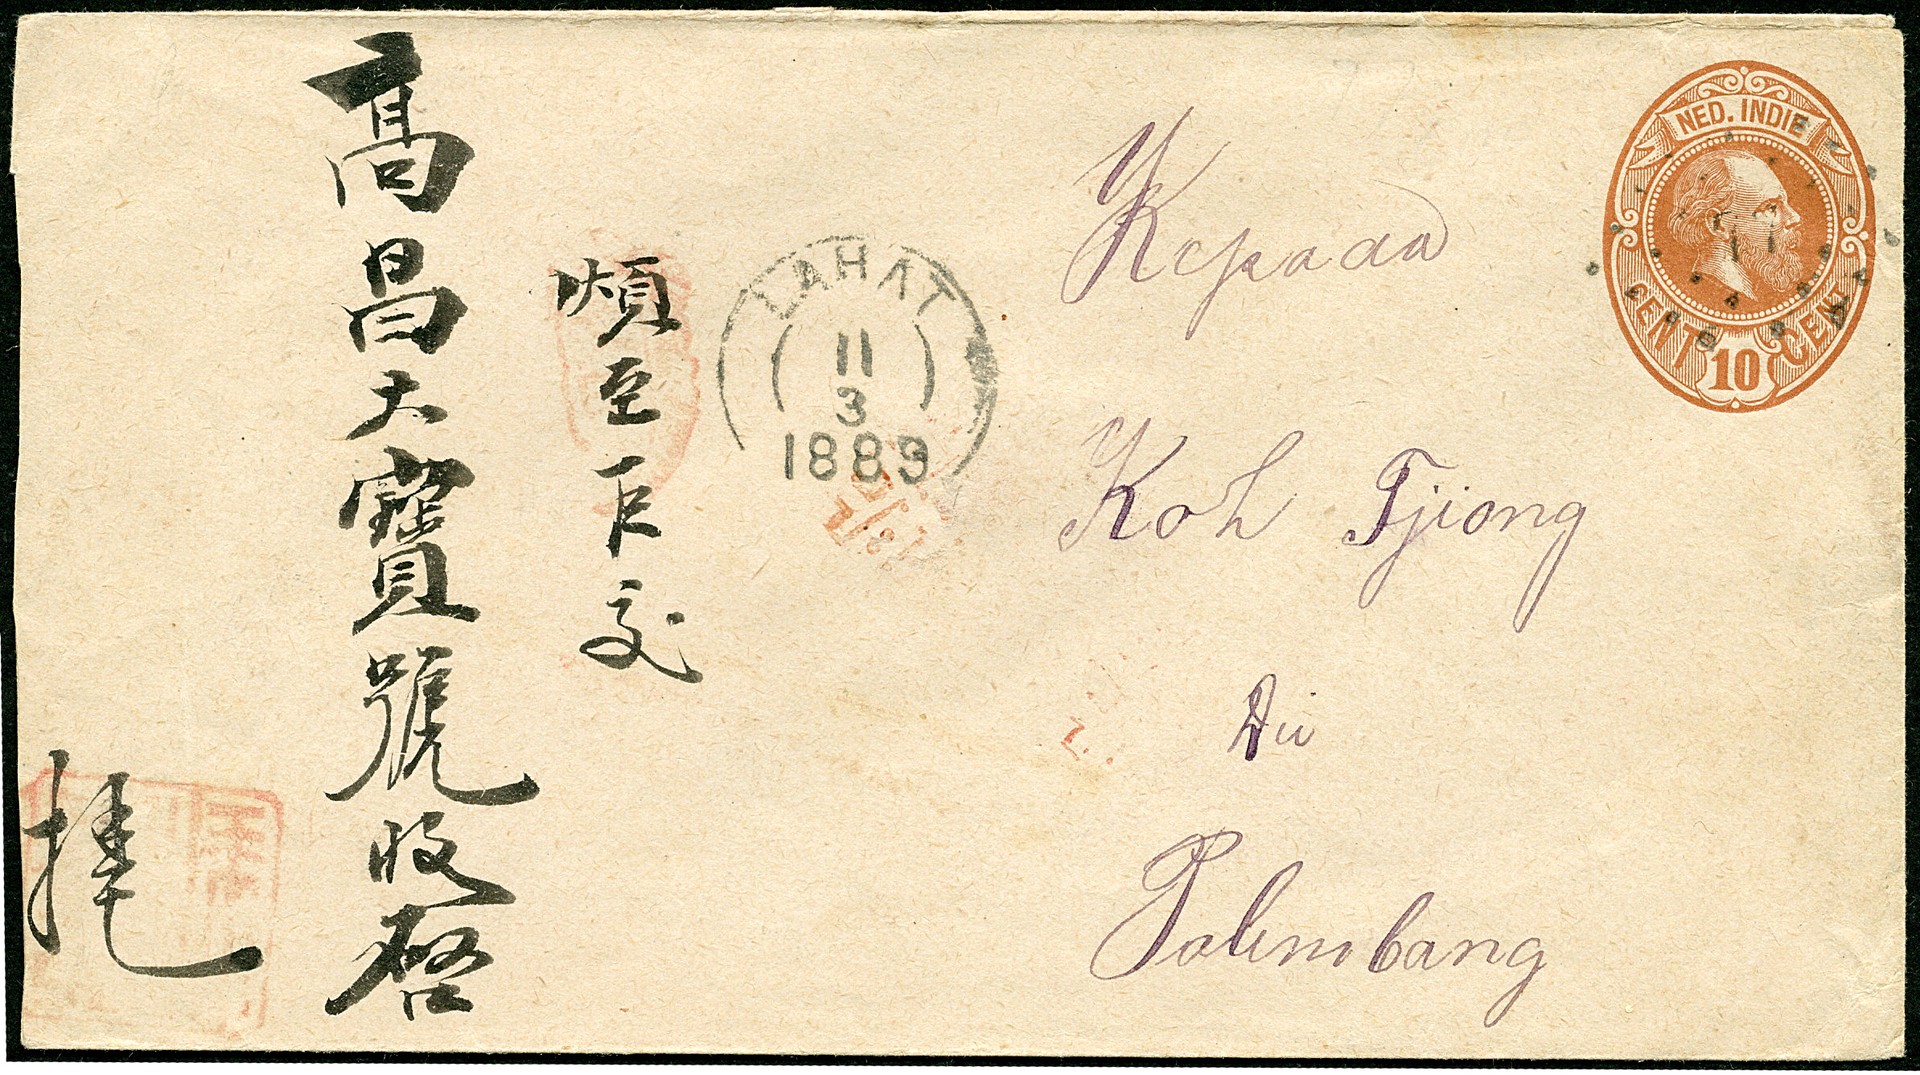 煩至巨交
高昌大寶號收啓
NED. INDIE
CENT 10 CENT
LAHAT
11
3
1889
Kepada
Koh Tjiong
Di
Palembang